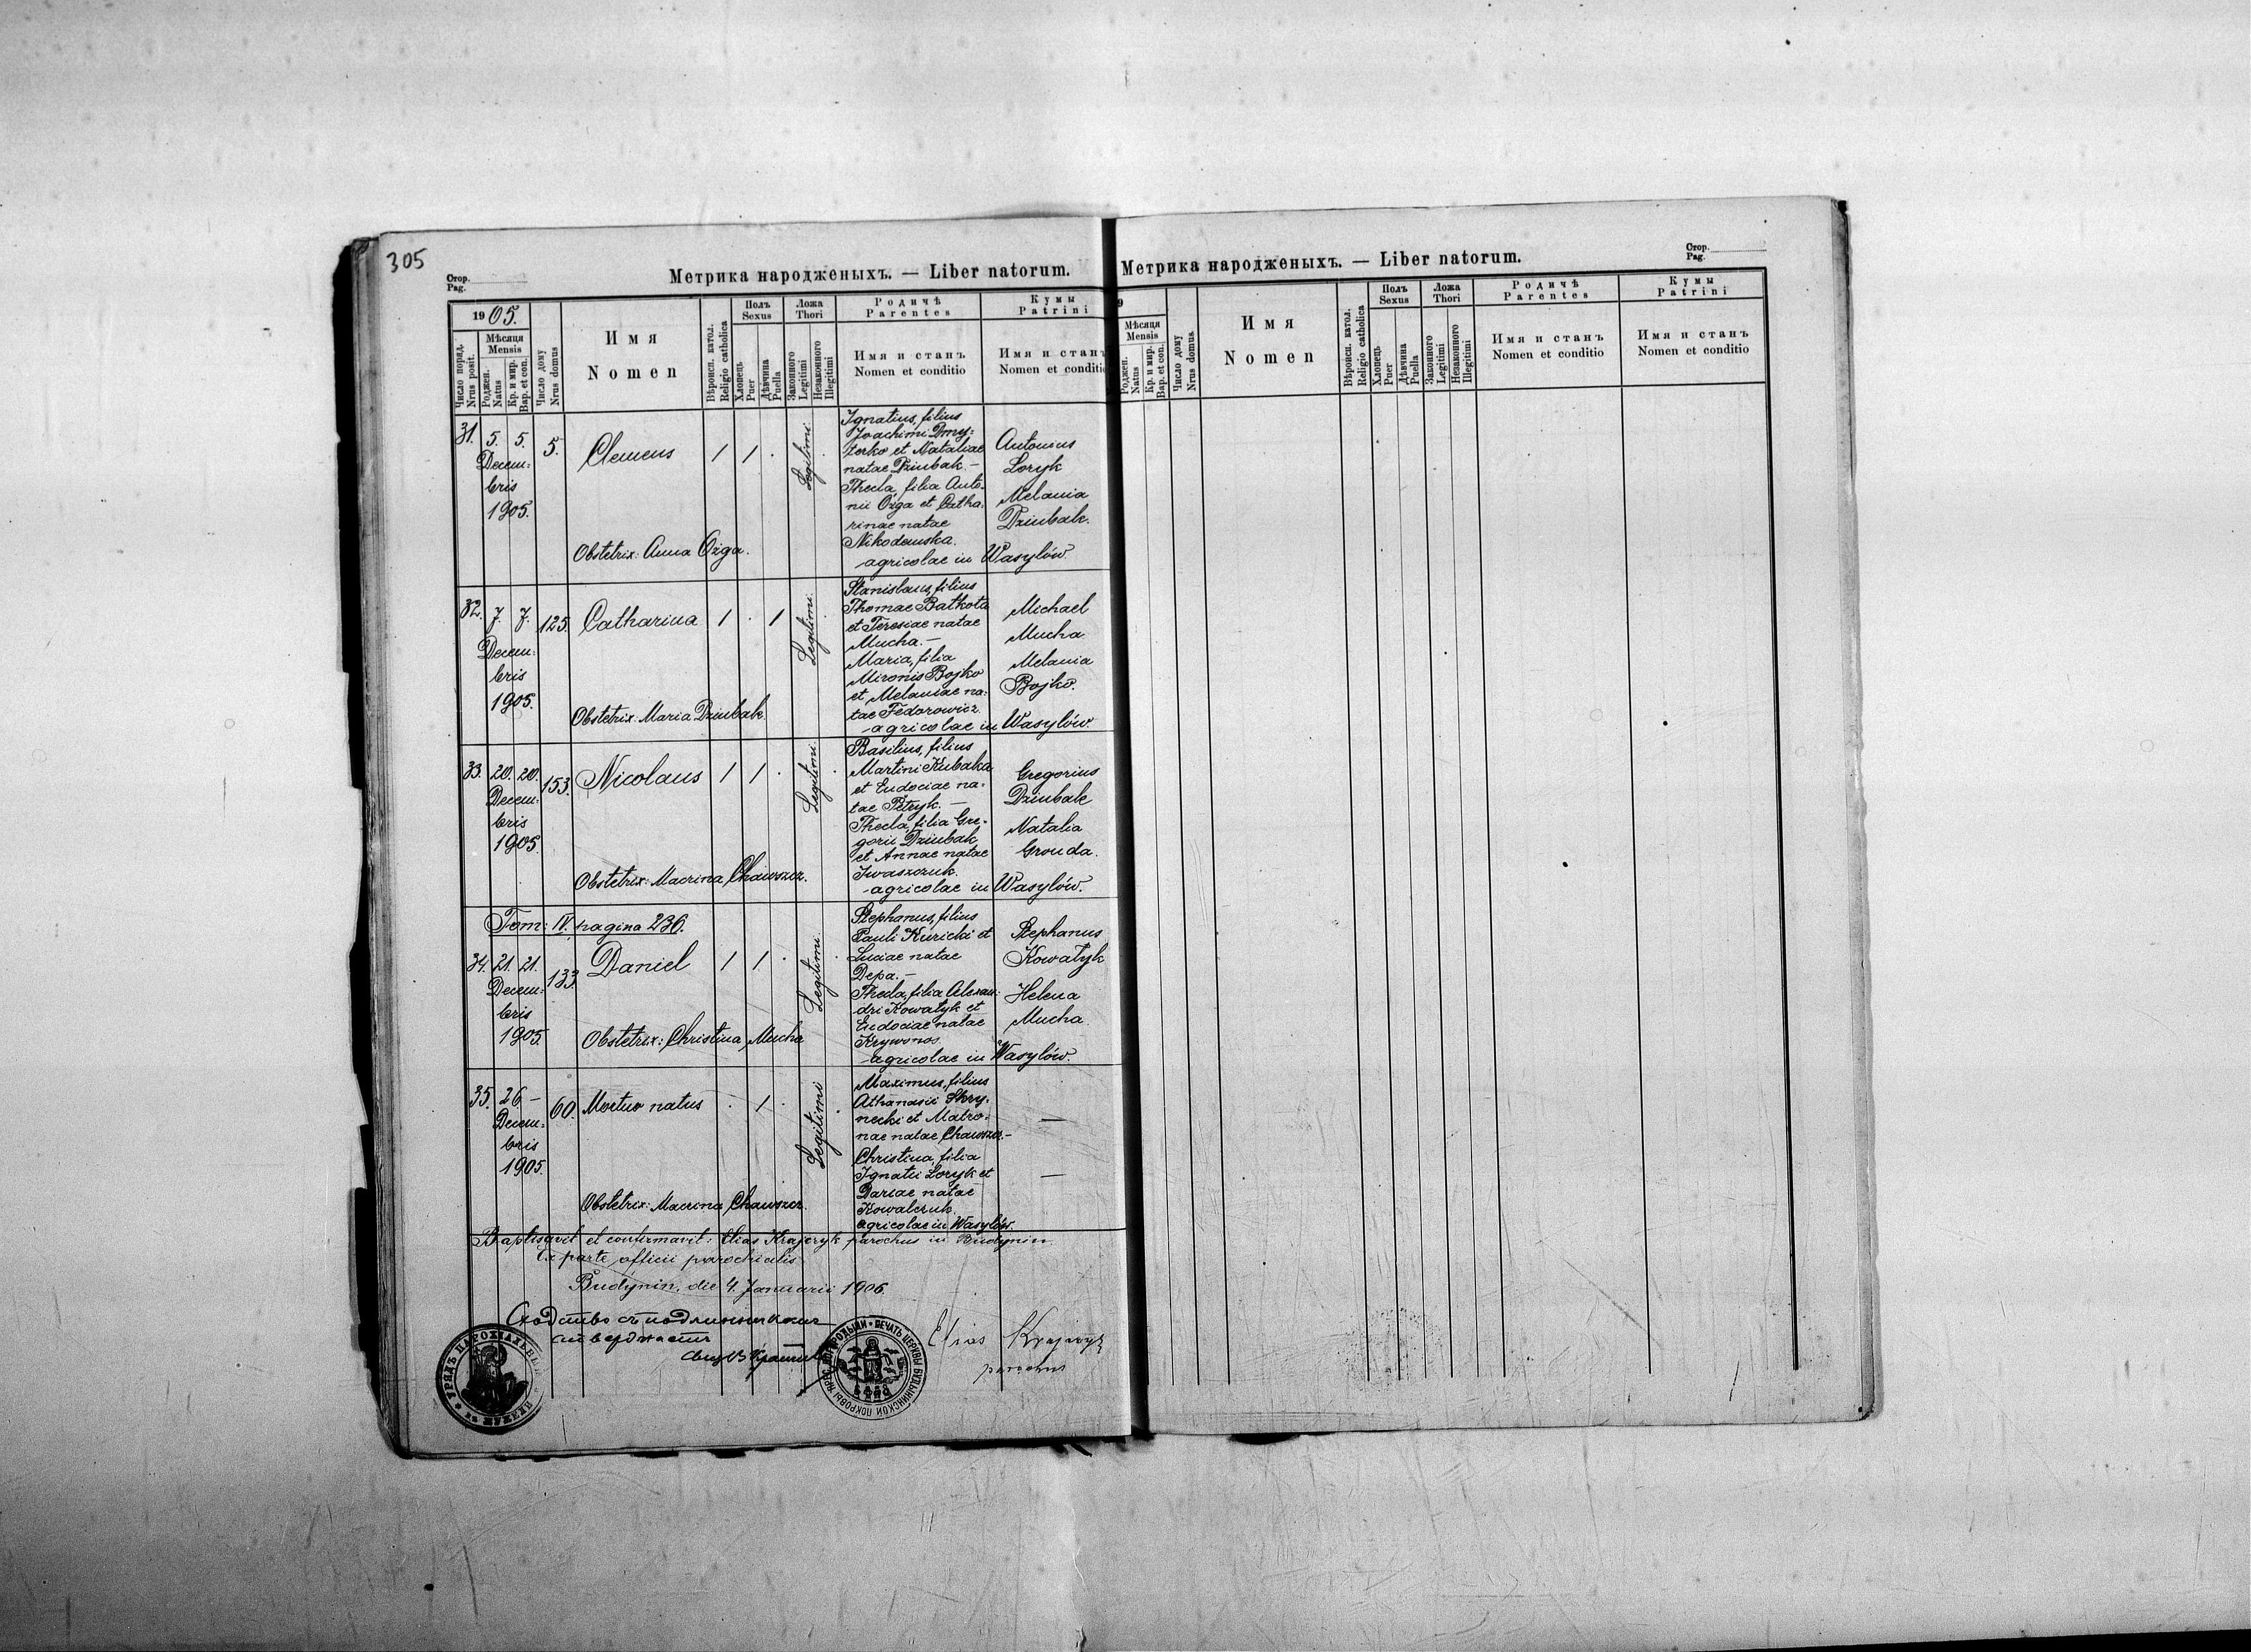 305
Стор.
Pag.
Метрика народженыхъ. — Liber natorum.
1905.
Число поряд.
Nrus posit.
Мѣсяця
Mensis
Роджен.
Natus
Кр. и мир.
Bap. et con.
Число дому
Nrus domus
Имя
Nomen
Вѣроисп. катол.
Religio catholica
Полъ
Sexus
Хлопець
Puer
Дѣвчина
Puella
Ложа
Thori
Законного
Legitimi
Незаконного
Illegitimi
Родичѣ
Parentes
Имя и станъ
Nomen et conditio
Кумы
Patrini
Имя и станъ
Nomen et conditio
31. 5. 5. 5. Clemens 1 1 . Legitimi .
Decem-
bris
1905.
Obstetrix: Anna Ożga.
Ignatius, filius
Joachimi Dmy-
terko et Nataliae
natae Dziubak. —
Thecla, filia Anto-
nii Ożga et Catha-
rinae natae
Nikodemska.
agricolae in Wasylów.
Antonius
Loryk
Melania
Dziubak.
32. 7. 7. 125. Catharina 1 . 1 Legitimi .
Decem-
bris
1905.
Obstetrix: Maria Dziubak.
Stanislaus, filius
Thomae Batkota
et Teresiae natae
Mucha. —
Maria, filia
Mironis Bojko
et Melaniae na-
tae Fedorowicz.
agricolae in Wasylów.
Michael
Mucha
Melania
Bojko.
33. 20. 20. 153. Nicolaus 1 1 . Legitimi .
Decem-
bris
1905.
Obstetrix: Macrina Chawszcz.
Basilius, filius
Martini Kubaka
et Eudociae na-
tae Petryk. —
Thecla, filia Gre-
gorii Dziubak
et Annae natae
Iwaszczuk.
agricolae in Wasylów.
Gregorius
Dziubak
Natalia
Gronda.
Tom: IV. pagina 236.
34. 21. 21. 133. Daniel 1 1 . Legitimi .
Decem-
bris
1905.
Obstetrix: Christina Mucha
Stephanus, filius
Pauli Kuricki et
Luciae natae
Depa. —
Thecla, filia Alexan-
dri Kowatyk et
Eudociae natae
Krywonos.
agricolae in Wasylów.
Stephanus
Kowatyk
Helena
Mucha.
35. 26 — 60. Mortuo natus . 1 . Legitimi .
Decem-
bris
1905.
Obstetrix: Macrina Chawszcz.
Maximus, filius
Athanasii Skry-
necki et Matro-
nae natae Chawszcz. —
Christina, filia
Ignatii Loryk et
Dariae natae
Kowalczuk.
agricolae in Wasylów.
—
—
Baptisavit et confirmavit: Elias Krajczyk parochus in Budynin
Ex parte officii parochialis
Budynin, die 4. Januarii 1906.
Сходство съ подлинникомъ
Elias Krajczyk
parochus
УРЯДЪ ПАРОХІАЛЬНЫЙ
ПЕЧАТЬ ЦЕРКВЫ БУДЫНИНСКОЙ ПОКРОВЫ ПРЕС. БОГОРОДЫЦИ
Стор.
Pag.
Метрика народженыхъ. — Liber natorum.
9
Мѣсяця
Mensis
Роджен.
Natus
Кр. и мир.
Bap. et con.
Число дому
Nrus domus
Имя
Nomen
Вѣроисп. катол.
Religio catholica
Полъ
Sexus
Хлопець
Puer
Дѣвчина
Puella
Ложа
Thori
Законного
Legitimi
Незаконного
Illegitimi
Родичѣ
Parentes
Имя и станъ
Nomen et conditio
Кумы
Patrini
Имя и станъ
Nomen et conditio